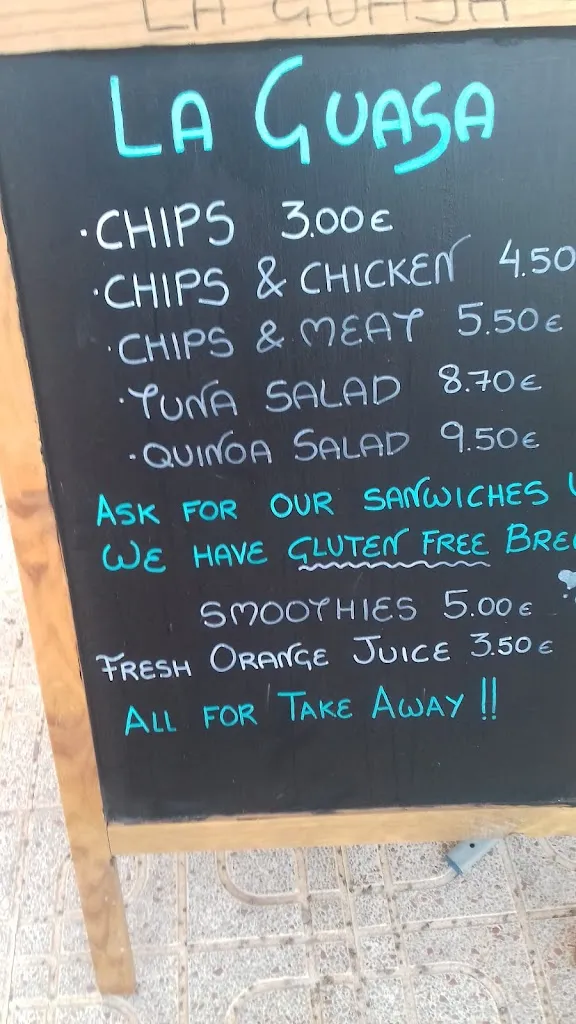 LA GUASA
LA GUASA
·CHIPS 3.00€
·CHIPS & CHICKEN 4.50
·CHIPS & MEAT 5.50€
·TUNA SALAD 8.70€
·QUINOA SALAD 9.50€
ASK FOR OUR SANWICHES
WE HAVE GLUTEN FREE BRE
SMOOTHIES 5.00€
FRESH ORANGE JUICE 3.50€
ALL FOR TAKE AWAY !!